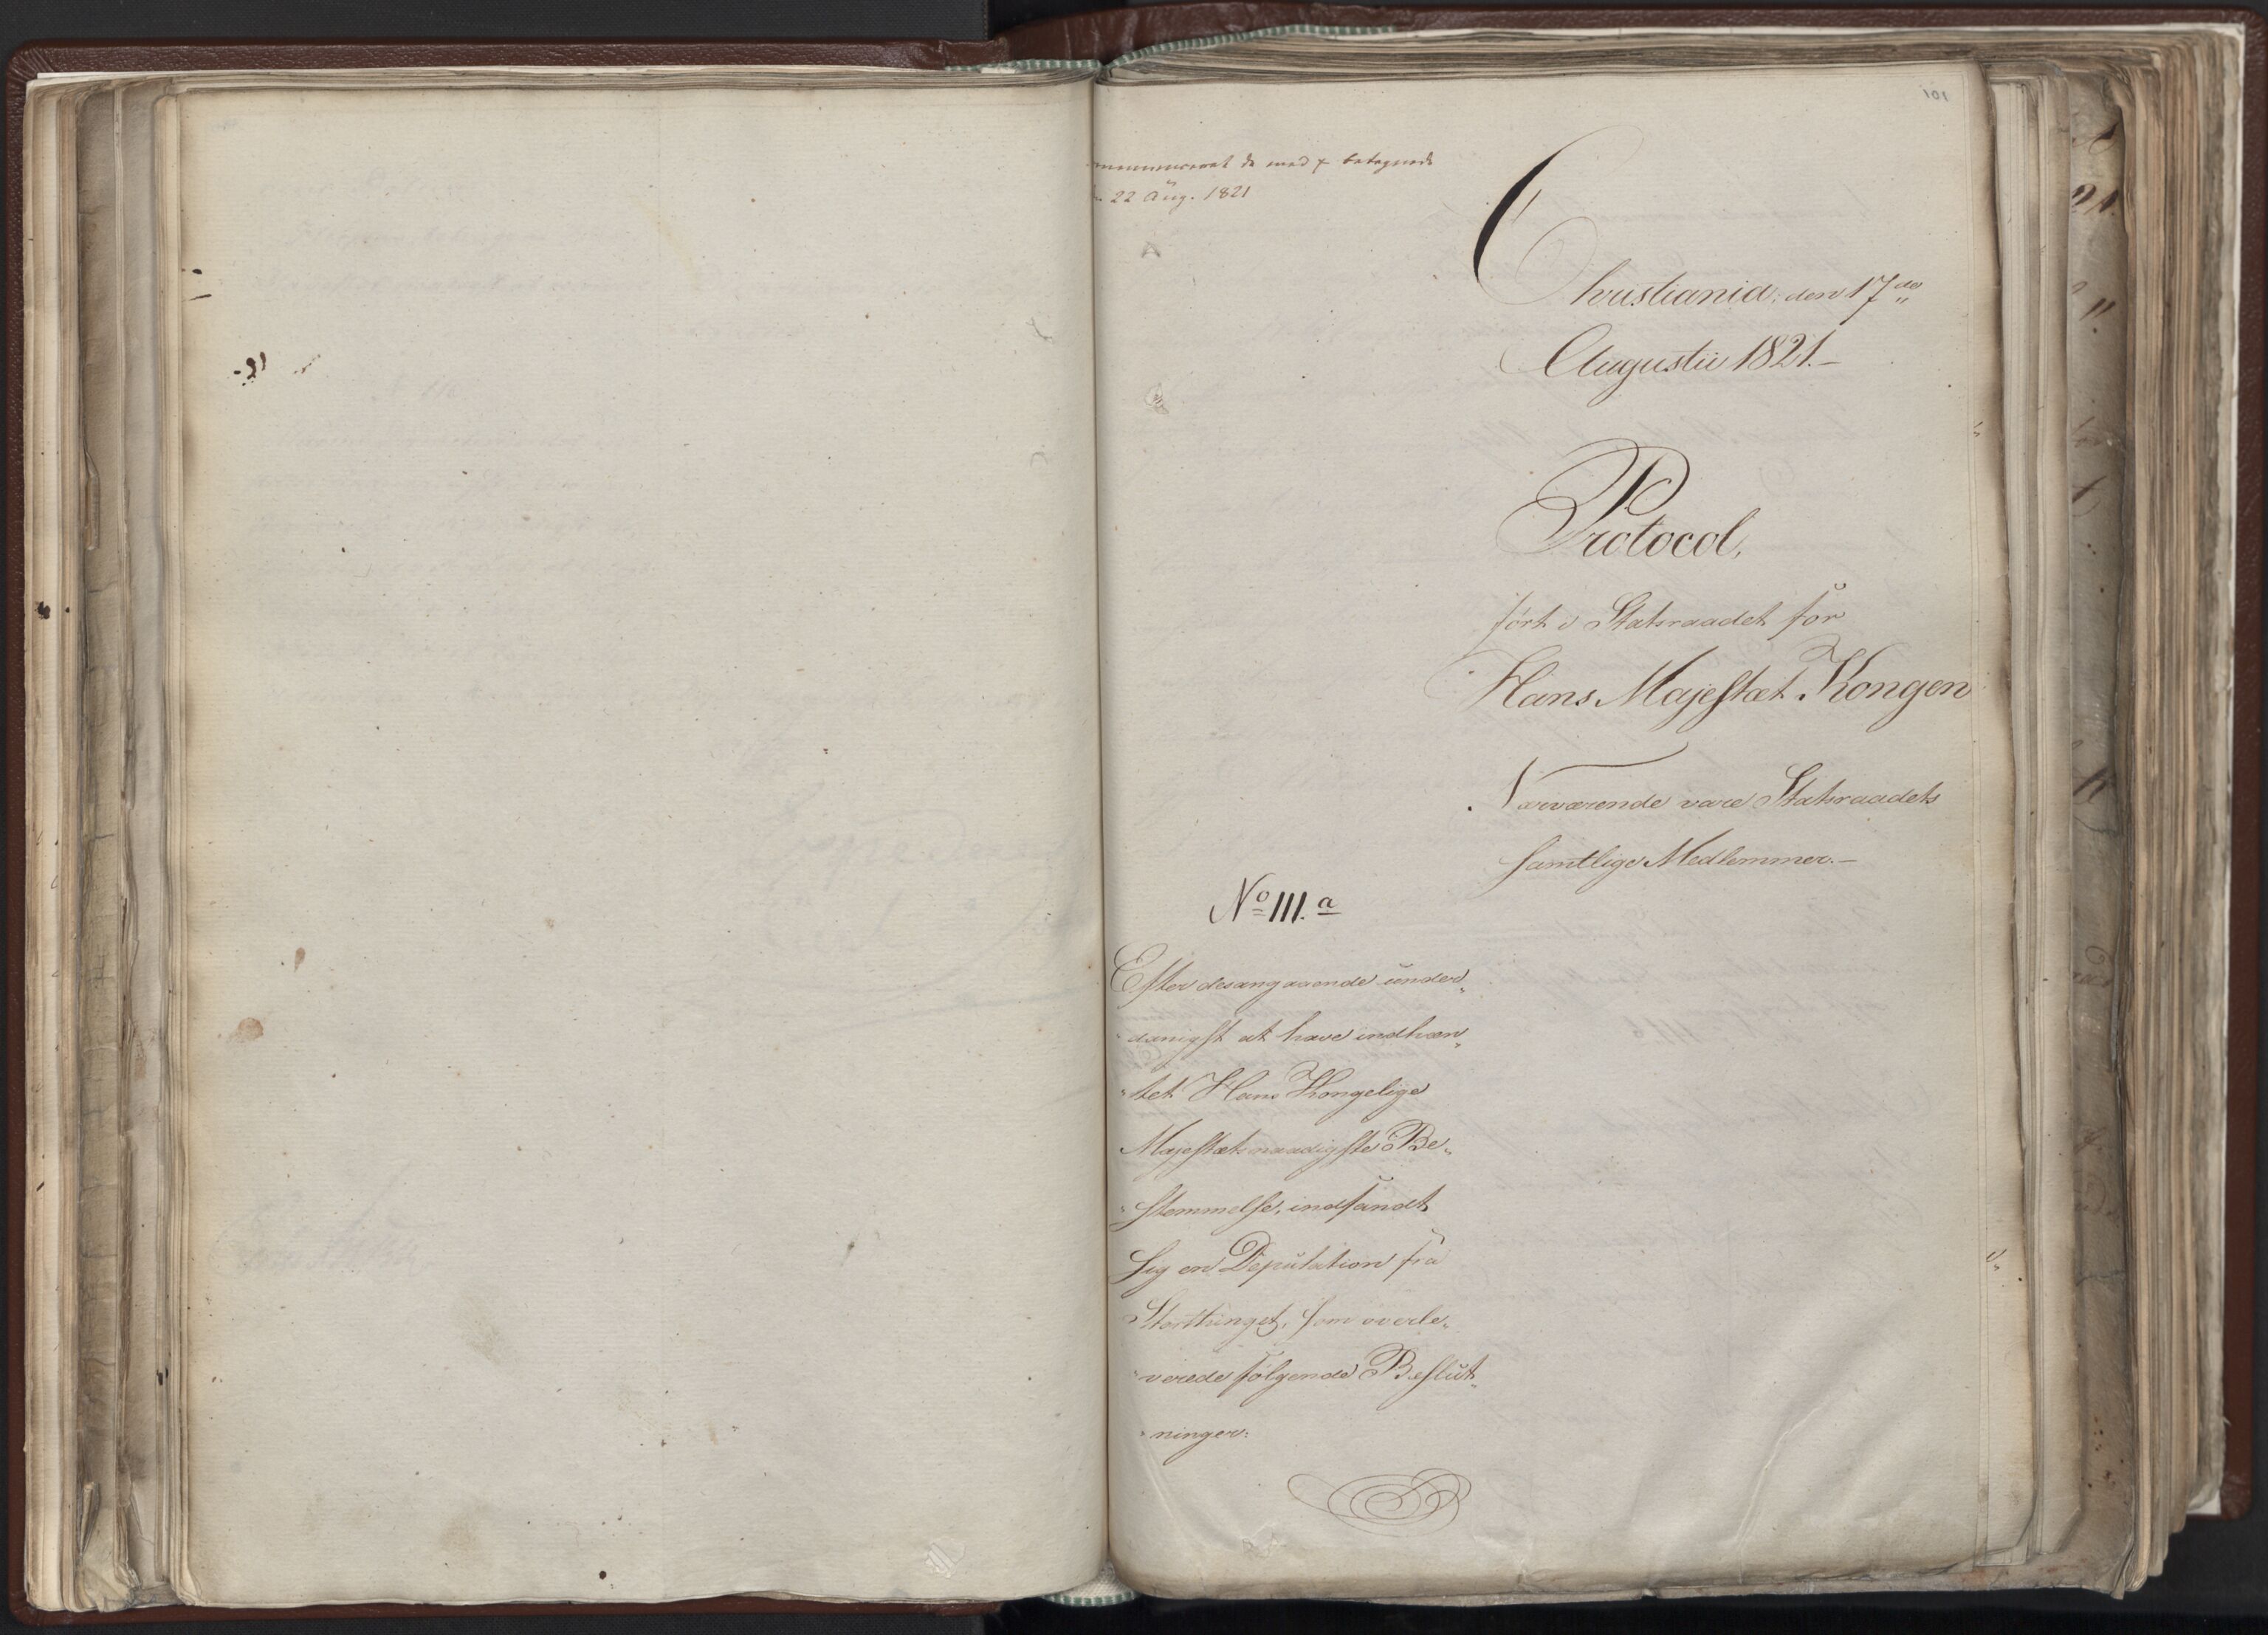 101
communiceret de med + betegnede
22 Aug. 1821
Christiania, den 17de
Augustii 1821.—
Protocol,
ført i Statsraadet for
Hans Majestæt Kongen
Nærværende vare Statsraadets
samtlige Medlemmer.—
No 111. a
Efter desangaaende under„
„danigst at have indhæn„
„tet Hans Kongelige
Majestæts naadigste Be„
„stemmelse, indfandt
sig en Deputation fra
Storthinget, som overle„
„verede følgende Beslut„
„ninger: